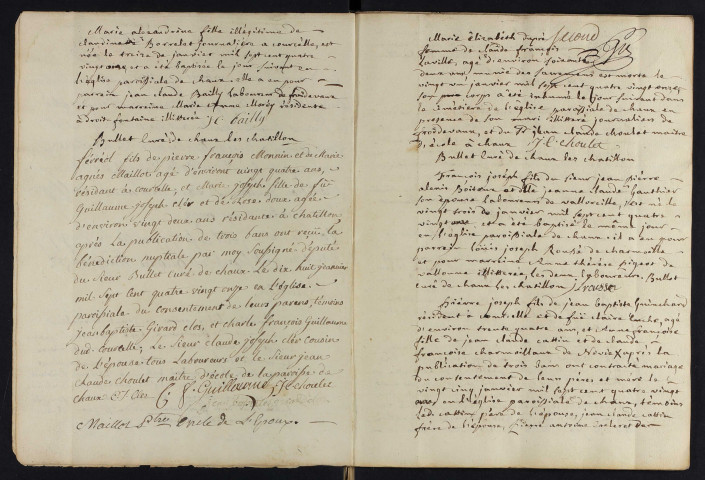 Marie alexandrine fille illégitime de
claudinette Borrelet journaliere a courcelle, est
née le treize de janvier mil sept cent quatre
vingt onze et a été baptisée le jour suivant en
l'église paroissiale de chaux elle a eu pour
parrein jean claude Bailly laboureur de froidevaux
et pour marreine Marie Anna résidente
a droit fontaine illitterés J C bailly
Bullet curé de chaux les chatillon
férréol fils de pierre françois Monnin et de Marie
agnès Maillot agé d'environt vingt quatre ans,
résidant à courcelle, et Marie joseph fille de fût
Guillaume joseph cler et de Rose doux agée
d'environ vingt deux ans résidante à chatillon
après la publication de trois bans ont reçus la
bénédiction nuptiale par moy soussigné député
du Sieur Bullet curé de chaux. Le dix huit janvier
mil sept cent quatre vingt onze en l'église
paroissiale du consentement de leurs parens, témoins
jean baptiste Girard clos, et charle françois Guillaume
dud. courcelle, Le Sieur claude joseph cler cousin
de l'épouse tous Laboureurs et le sieur jean
claude choulet maître d'école de la paroisse de
chaux CJ Cler C F Guillaume J C choulet
Maillot Ptre Oncle de L'époux
Marie élizabeth dupré second
femme de claude françois
laville, agé d'environ soixante
deux ans, munie des sacremens est morte le
vingt un janvier mil sept cent quatre vingt onze
son corps a été inhumé le jour suivant dans
le cimetière de l'église paroissiale de chaux en
présence de son mari illitteré journaliers de
froidevaux, et du Sr jean claude choulet maitre
d'école a chaux J C choulet
Bullet curé de chaux les chatillon
François joseph fils du sieur jean pierre
alexis Boiteux et de jeanne claude Gauthier
son épouse laboureurs de valloreille, est né le
vingt trois de janvier mil sept cent quatre
vingt onze et a été baptisé le même jour
en l'église paroissiale de chaux il a eu pour
parrein louis joseph de
et pour marreine Anne thérèse pigeot de
valonne illitterée, les deux laboureurs, Bullet
curé de chaux les chatillon
Pierre joseph fils de jean baptiste Guinchard
résident à et de fuë claire , agé
d'environ trente quatre ans, et Anne françoise
fille de jean claude cattin et de claude
françoise charmoillaux de après la
publication de trois bans ont contracté mariage
du contentement de leurs peres et mere le
vingt cinq janvier mil sept cent quatre vingt
onze, en l'église paroissiale de chaux, témoins
led. cattin père de l'épouse, jean claude cattin
frère de l'épouse, pierre antoine de